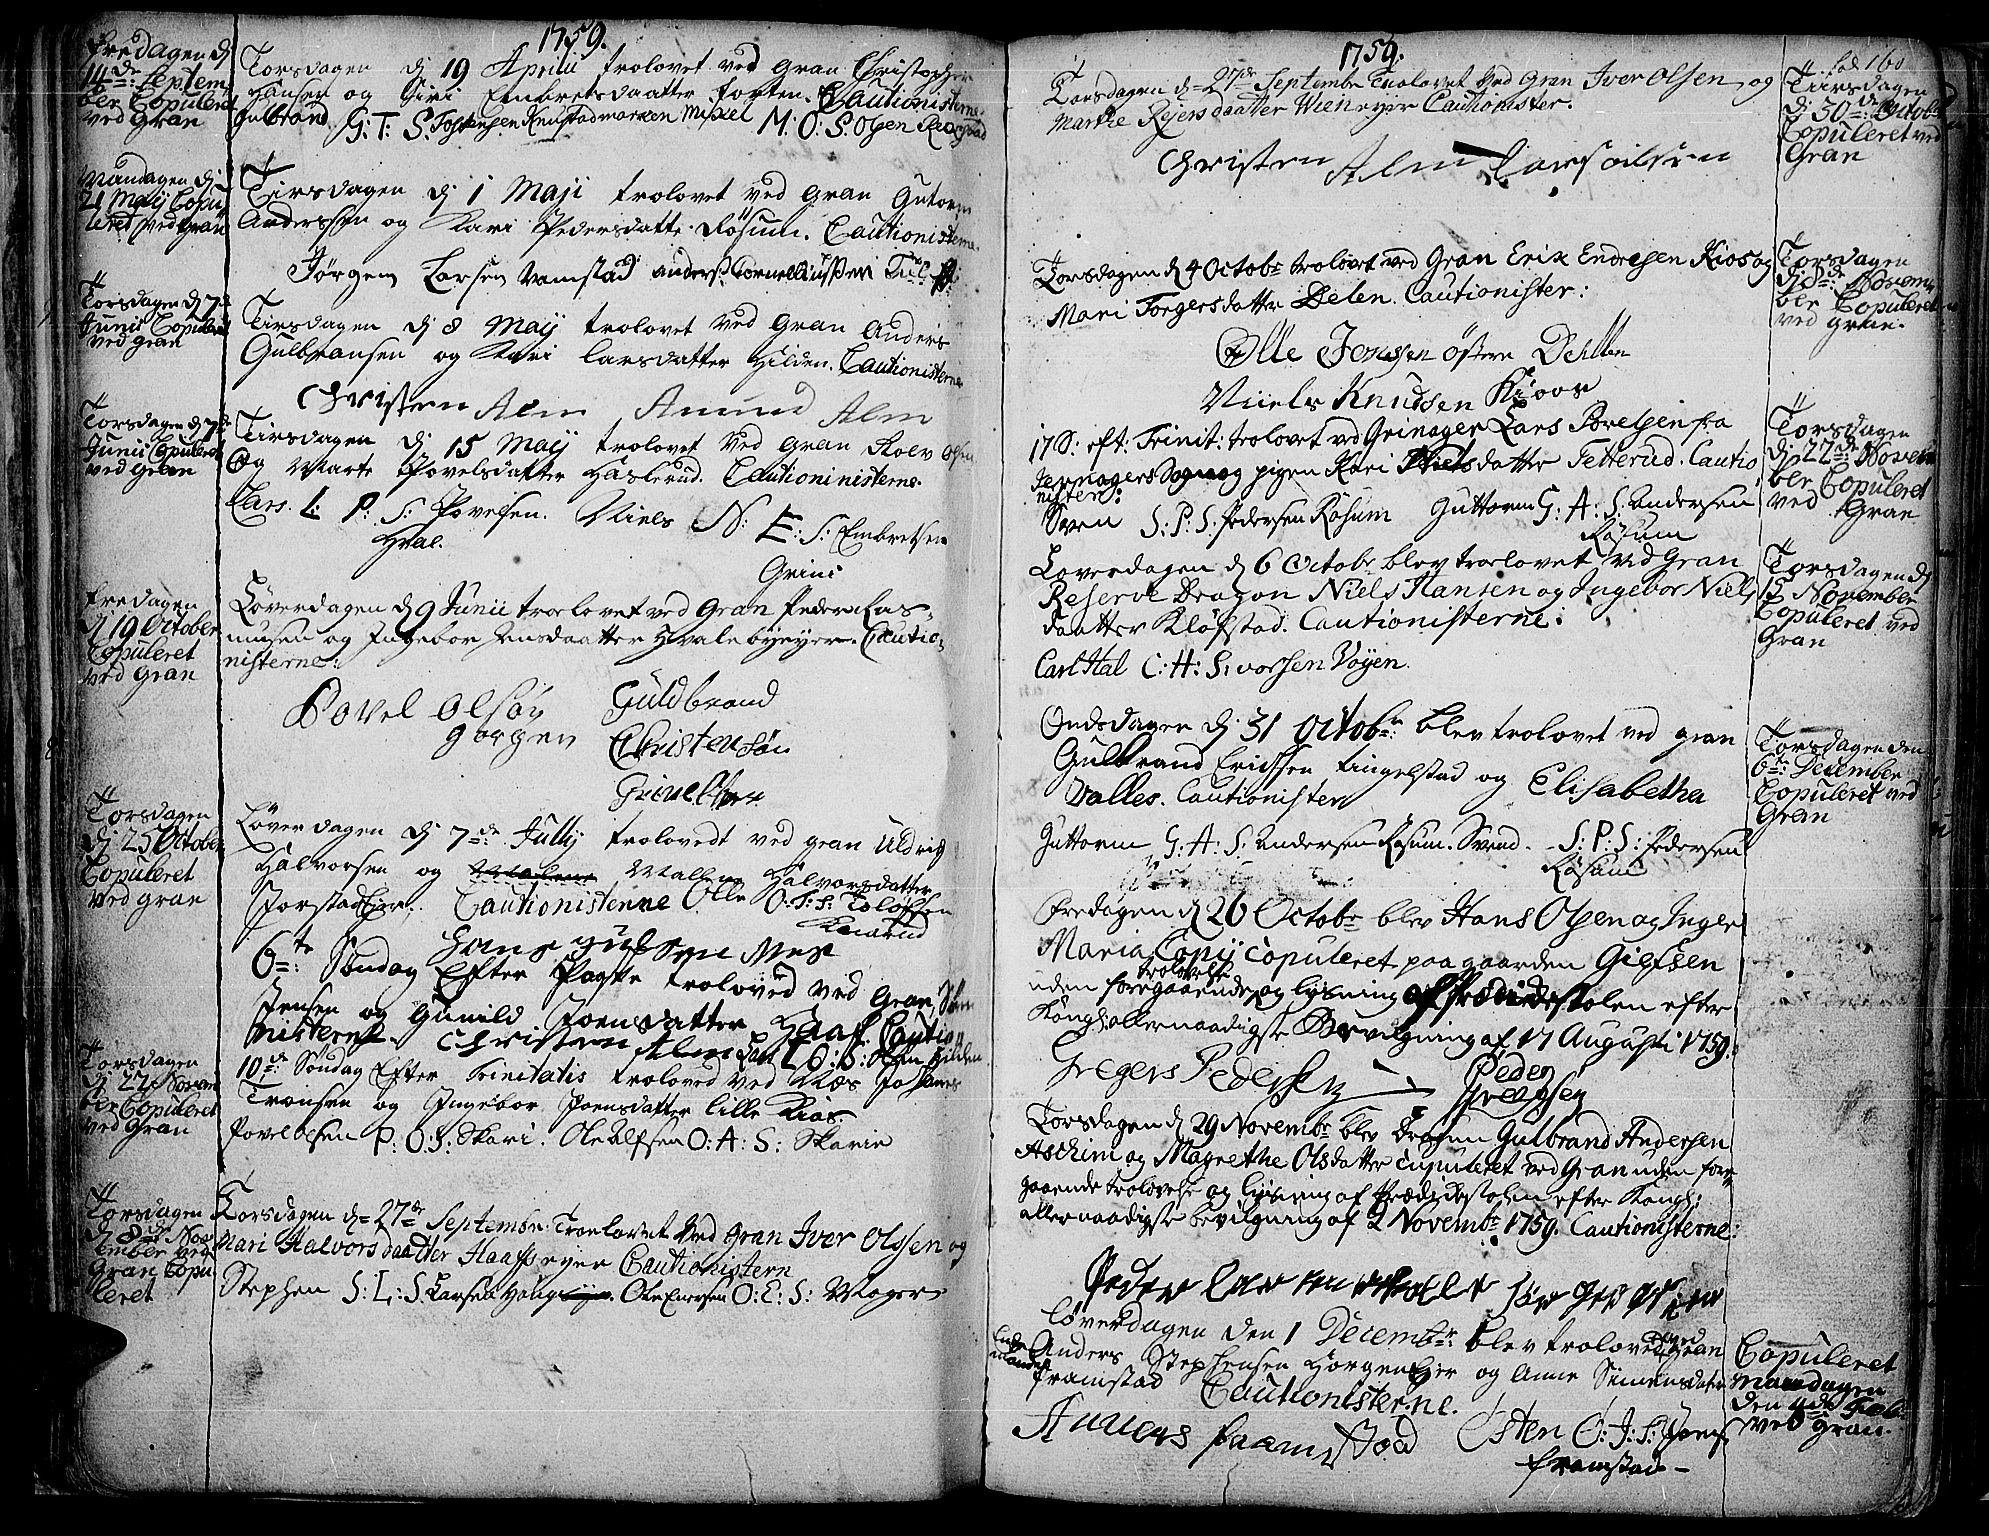 1759.
Fredagen d:
14de Septem
ber Copuleret
ved Gran
Torsdagen d: 19 Aprilii trolovet ved Gran Christopher
Hansen og Siri Embretsdaatter Cautionisterne
Gulbrand G: T: S: Tostensen Michel M: O: S: Olsen
Mandagen d:
21 Maij Copu
leret ved Gran
Tirsdagen d: 1 Maji trolovet ved Gran Gutorm
Anderssen og Kari Pedersdatter Røsum. Cautionisterne
Jørgen Larsen Vamstad anders Cornelliussen
Torsdagen d: 7de
Junii Copuleret
ved Gran
Tirsdagen d: 8 Maij trolovet ved Gran Anders
Gulbransen og Kari Larsdatter Hilden. Cautionisterne
Christen Alm Amund Alm
Torsdagen d: 7de
Junii Copuleret
ved Gran
Tirsdagen d: 15 Maij trolovet ved Gran Roev Olsen
og Marte Povelsdatter Haslerud. Cautioninisterne.
Lars L: P: S: Povelsen. Niels N: E: S: Embretsen
Hval. Grini
Fredagen
d 19 October
Copuleret
ved Gran
Løverdagen d 9 Junii trolovet ved Gran Peder Ras-
musen og Ingebor Jensdaatter Hvale Cautio-
nisterne:
Povel Olsøn Guldbrand
Gorgen Christensøn
Torsdagen
d: 25 October
Copuleret
ved Gran
Løverdagen d: 7de Jullij trolovedt ved Gran Uldrich
Halvorsen og Mallene Halvorsdatter
Cautionisterne Olle O: T: S: Toløfsen
6te: Søndag Efter Paaske troloved ved Gran,
Jensen og Gunild Joensdatter Haaf. Cautio
nisterne. Christen Alm Lars L: O: S: Olsen Hilden
Torsdagen
d 22 Novem
ber Copuleret
ved Gran
10de: Søndag Efter Trinitatis troloved ved Næs Johannes
Tronsen og Ingebor Joensdatter lille Kios.
Povel Olsen P: O: S: Skari. Ole Alfsen O: A: S: Skarie
Torsdagen
d 8de Nov
ember ved
Gran Copu-
leret
Torsdagen d= 27de Septembr: Trolovet ved Gran Iver Olssen og
Mari Halvorsdaatter Haafs eyer Cautionistern
Stephen S: L: S: Larsen Haug Ole Enersen O: E: S: Moger
1759.
160
Torsdagen d= 27de Septembr Trolovet ved Gran Iver Olsen og
Marthe Reiersdaatter Wien eyer Cautionister.
Christen Alm
Tirsdagen
d: 30de Octobr
Copuleret ved
Gran
Torsdagen d 4 Octobr trolovet ved Gran Erik Endresen Kios og
Mari Torgersdatter Delen. Cautionister:
Olle Jenssen østere Dehlen
Niels Knudsen Kioos
Torsdagen
d 8de: Novem
ber Copuleret
ved Gran.
17 S: eft: Trinit: trolovet ved Grinager Lars Povelsen fra
Jevnagers Sogn og pigen Kari Nielsdatter Tetterud. Cautio
nister:
Sven S: P: S: Pedersen Røsum Guttorm G: A: S: Andersen
Røsum
Torsdagen
d: 22de Novem
ber Copuleret
ved Gran
Løverdagen d 6 Octobr blev trolovet ved Gran
Reserve Dragon Niels Hansen og Ingebor Niels
daatter Kløfstad. Cautionisterne:
Carl Hal C: H: S: vorsen Vøyen.
Torsdagen d
15 November
Copuleret ved
Gran
Ondsdagen d: 31 Octobr: blev trolovet ved Gran
Gulbrand Erichsen Tingelstad og Elisabetha
Valles. Cautionister
Guttorm G: A: S: Andersen Røsum. Svend S: P: S: Pedersen
Røsum
Torsdagen den
6te: December
Copuleret ved
Gran
Fredagen d 26 Octobr blev Hans Olsen og Inger
Maria Copij Copuleret paa gaarden Giefsen
uden foregaaende trolovelse og lysning af Prædickestolen efter
Kongl: allernaadigste Bevilgning af 17 Augusti 1759.
Gregers Pedersen Peder
Torsdagen d 29 Novembr blev Dragun Gulbrand Andersen
Aschim og Magrethe Olsdatter Copuleret ved Gran uden fore
gaaende trolovelse og lysning af Prædickestolen efter Kongl:
allernaadigste bevilgning af 2 Novembr 1759. Cautionisterne:
Løverdagen den 1 Decembr blev troloved ved Gran
Enke
mand Anders Stephensen Horgen Eier og Anne Simensdatter
Framstad Cautionisterne.
Anders Framstad Østen Ø: J: S: Joens
Framstad
Copuleret
Mandagen
den 4de Feb:
ved Gran.